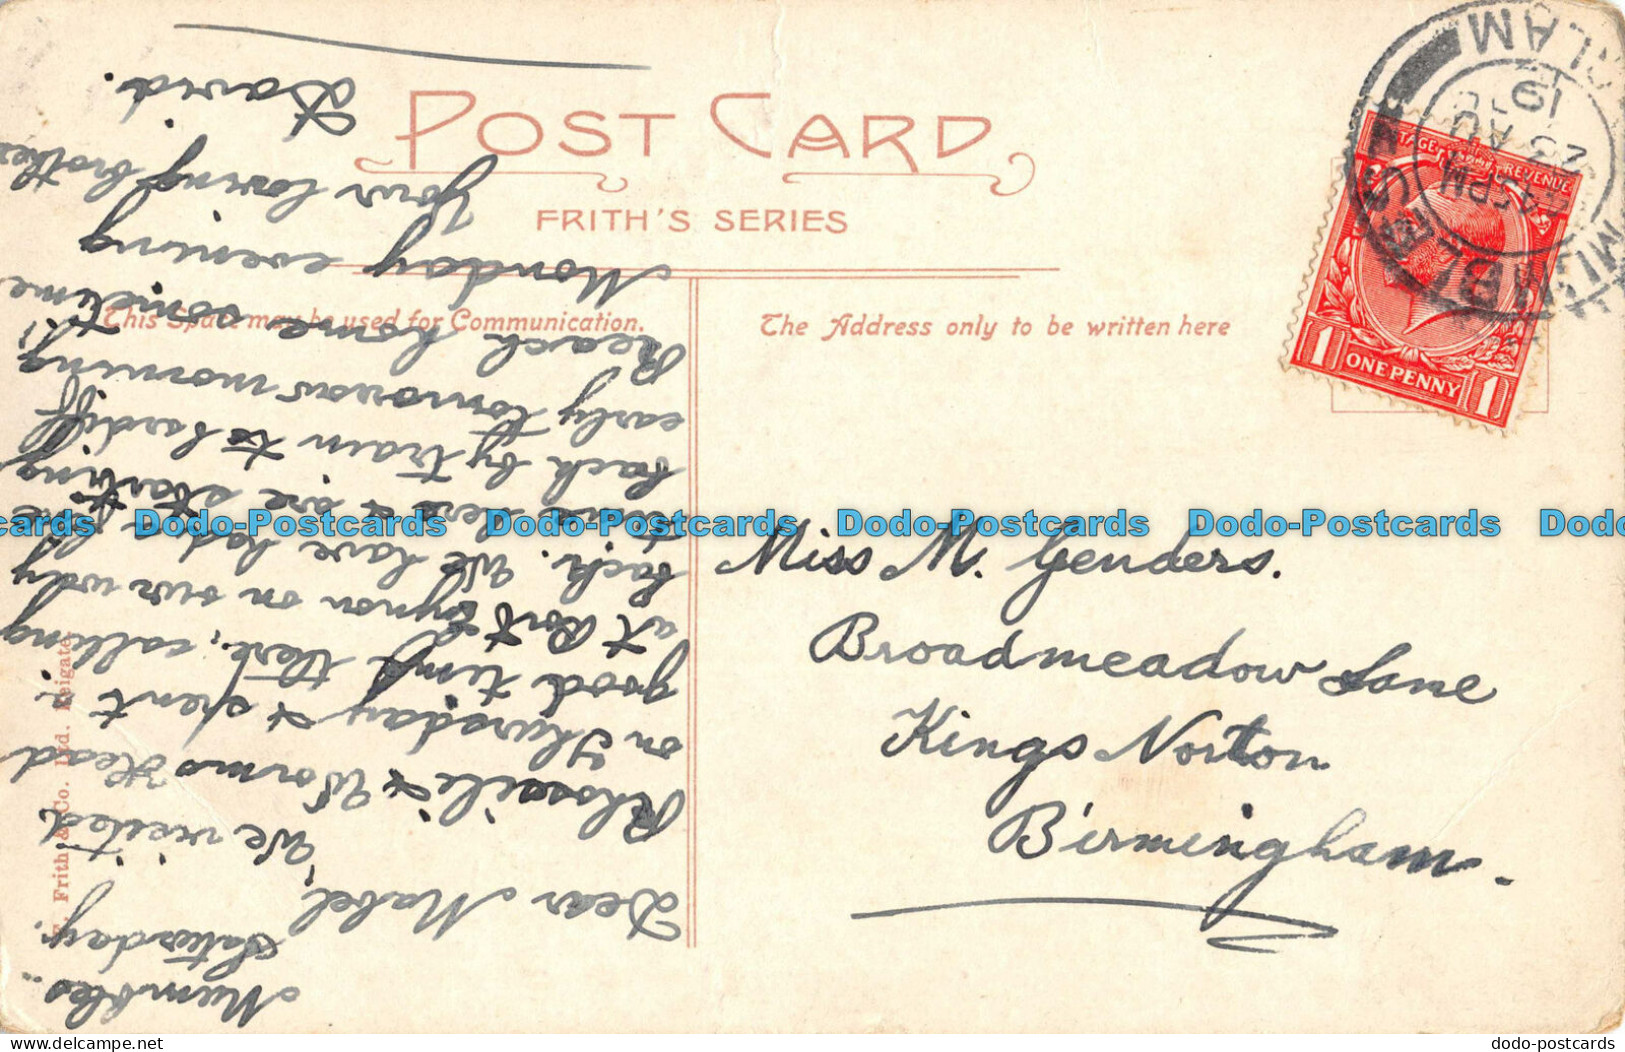 POST CARD
FRITH'S SERIES
This Space may be used for Communication.
The Address only to be written here
F. Frith & Co. Ltd. Reigate.
Mumbles..
Saturday.
Dear Mabel,
We visited
Rhossile & Worms Head
on Thursday & spent a
good time there, calling
at Port Eynon on our way
back. We have had a fine
time here & are starting
back by train to Cardiff
early tomorrow morning
Reach home sometime
Monday evening
Your loving brother
David.
Miss M. Genders.
Broadmeadow Lane
Kings Norton
Birmingham.
POSTAGE REVENUE
1 ONE PENNY 1
45 PM
23 AU
19
Dodo-Postcards Dodo-Postcards Dodo-Postcards Dodo-Postcards
dodo-postcards